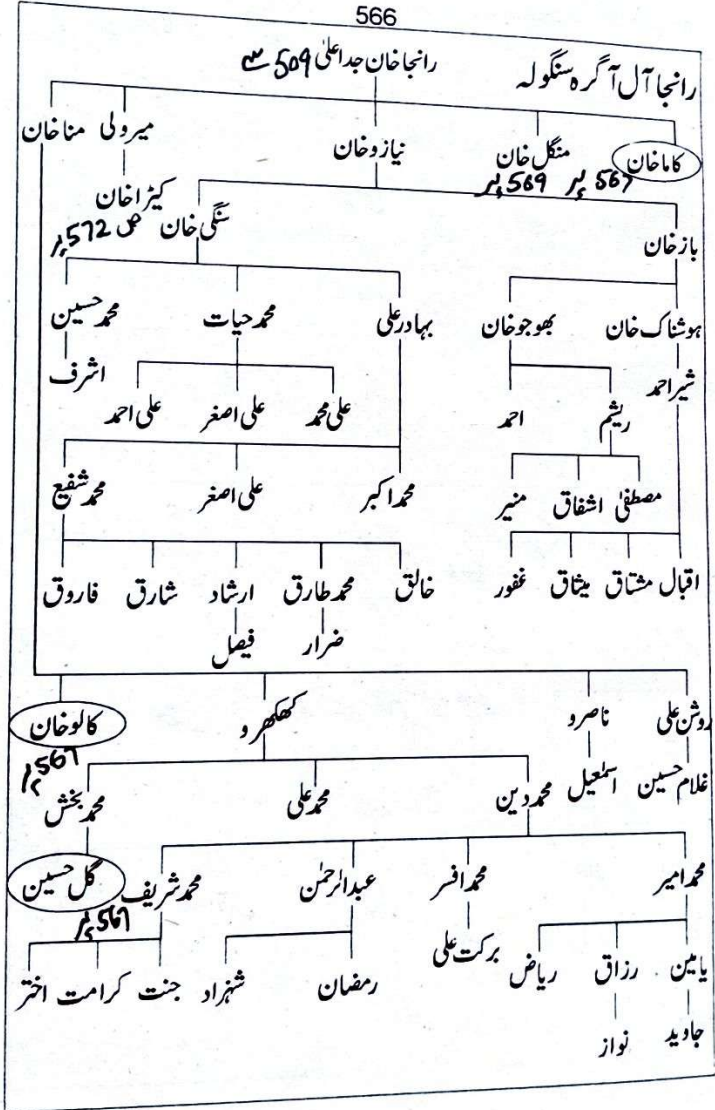 566
رانجا آل آگرہ سنگولہ
رانجا خان جد اعلیٰ 509 سے
کاما خان منگل خان نیازو خان میرولی منا خان
567 پر 569 پر
کیڑا خان
ص 572 پر
باز خان سنگی خان
ہوشناک خان بھوجو خان بہادر علی محمد حیات محمد حسین
شیر احمد ریشم احمد علی محمد علی اصغر علی احمد اشرف
مصطفیٰ اشفاق منیر محمد اکبر علی اصغر محمد شفیع
اقبال مشتاق میثاق غفور خالق محمد طارق ارشاد شارق فاروق
ضرار فیصل
روشن علی ناصرو کھکھرو کالو خان
567 پر
غلام حسین اسمٰعیل محمد دین محمد علی محمد بخش
محمد امیر محمد افسر عبدالرحمٰن محمد شریف گل حسین
567 پر
یامین رزاق ریاض برکت علی رمضان شہزاد جنت کرامت اختر
جاوید نواز